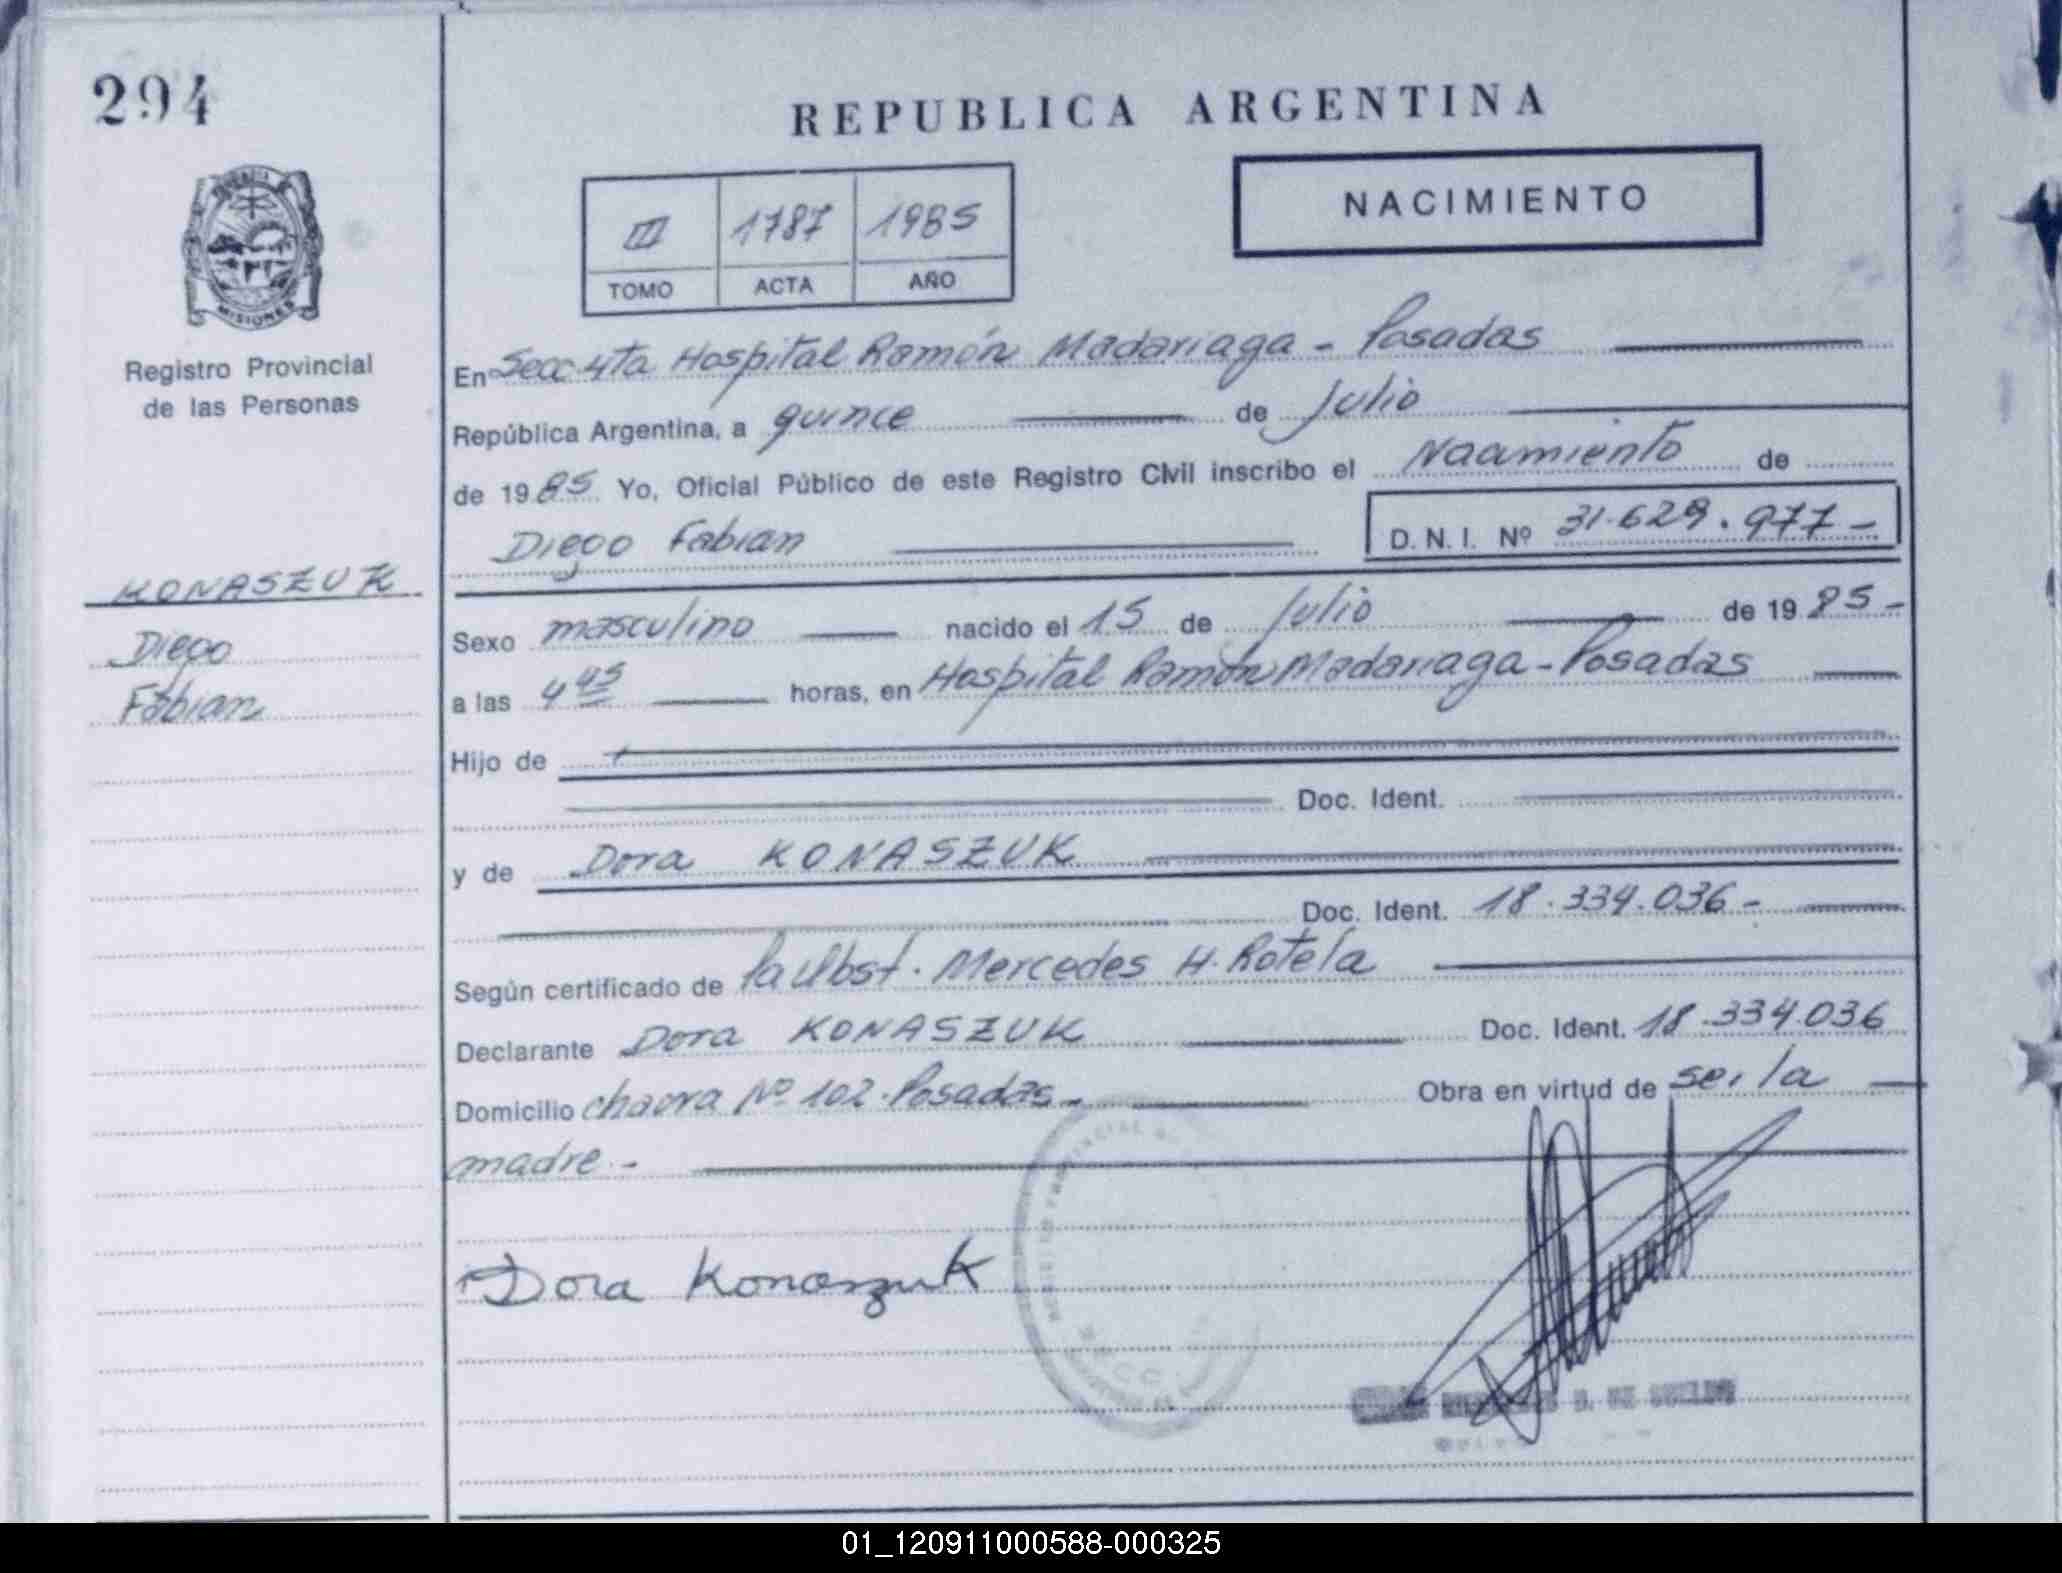 294
REPUBLICA ARGENTINA
NACIMIENTO
III 1787 1985
TOMO ACTA AÑO
MISIONES
Registro Provincial
de las Personas
KONASZUK
Diego
Fabian
En Secc 4ta Hospital Ramón Madariaga - Posadas
República Argentina, a quince de Julio
de 1985 Yo, Oficial Público de este Registro Civil inscribo el Nacimiento de
Diego Fabian D. N. I. Nº 31.629.977-
Sexo masculino nacido el 15 de Julio de 1985-
a las 4 45 horas, en Hospital Ramón Madariaga - Posadas
Hijo de
Doc. Ident.
y de Dora KONASZUK
Doc. Ident. 18.334.036-
Según certificado de Mercedes H. Rotela
Declarante Dora KONASZUK Doc. Ident. 18.334.036
Domicilio chacra Nº 102. Posadas.- Obra en virtud de ser la
madre.-
Dora Konaszuk
01_120911000588-000325